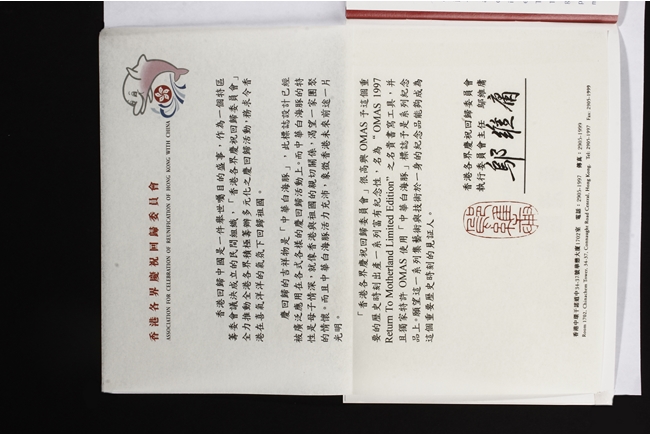 香港各界慶祝回歸委員會
ASSOCIATION FOR CELEBRATION OF REUNIFICATION OF HONG KONG WITH CHINA
香港回歸中國是一件舉世矚目的盛事，作為一個特區
籌委會議決成立的民間組織，「香港各界慶祝回歸委員會」
全力推動全港各界積極籌辦多元化之慶回歸活動，務求令香
港在喜氣洋洋的氣氛下回歸祖國。
慶回歸的吉祥物是「中華白海豚」，此標誌設計已經
被廣泛應用在各式各樣的慶回歸活動上。而中華白海豚的特
性是母子情深，就像香港與祖國的親切關係，渴望一家團聚
的情懷。而且中華白海豚活力充沛，象徵香港未來前途一片
光明。
「香港各界慶祝回歸委員會」很高興 OMAS 予這個重
要的歷史時刻出產一系列富有紀念性，名為 “ OMAS 1997
Return To Motherland Limited Edition” 之名貴書寫工具，并
且獨家特許 OMAS 使用「中華白海豚」標誌予是系列紀念
品上。願望這一系列集藝術與技術於一身的紀念品能夠成為
這個重要歷史時刻的見証人。
香港各界慶祝回歸委員會
執行委員會主任 鄔維庸
鄔維庸
香港中環干諾道中34-37號華懋大廈1702室 電話：2905-1997 傳真：2905-1999
Room 1702, Chinachem Tower, 34-37, Connaught Road Central, Hong Kong. Tel: 2905-1997 Fax: 2905-1999